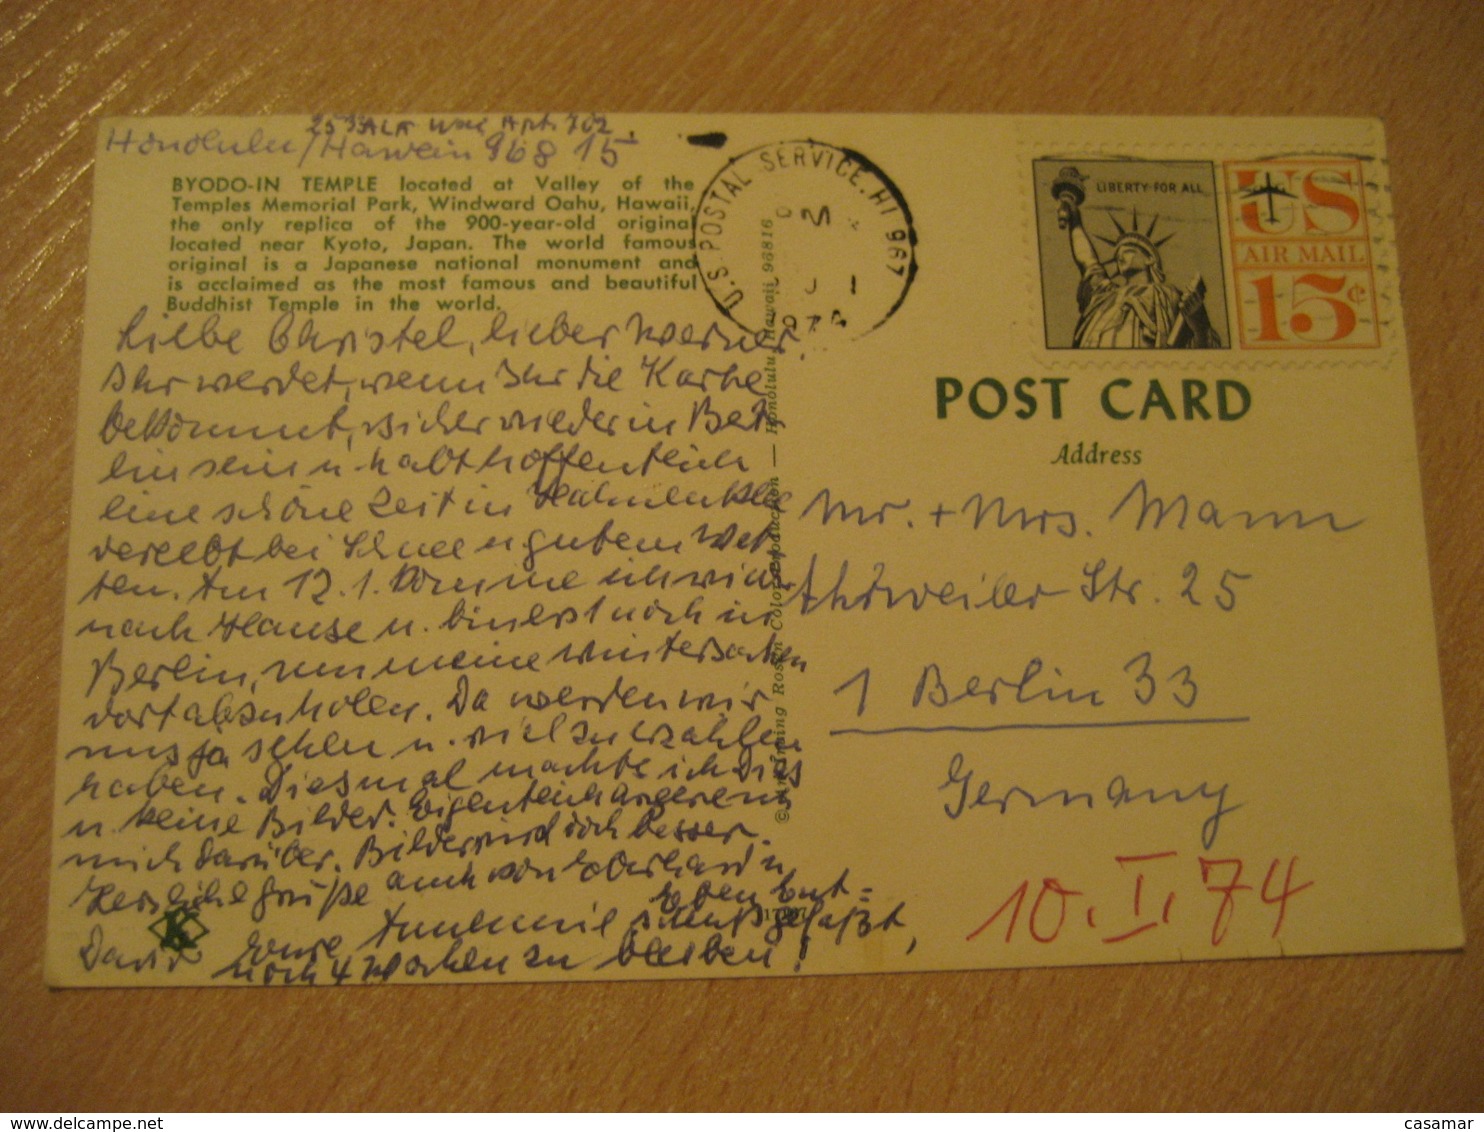 Honolulu/Hawein 96815
Apt. 702
BYODO-IN TEMPLE located at Valley of the
Temples Memorial Park, Windward Oahu, Hawaii,
the only replica of the 900-year-old original
located near Kyoto, Japan. The world famous
original is a Japanese national monument and
is acclaimed as the most famous and beautiful
Buddhist Temple in the world.
Liebe Christel, lieber Werner,
Ihr werdet, wenn Ihr die Karte
bekommt, sicher wieder in Ber-
lin sein u. habt hoffentlich
eine schöne Zeit in Hahnenklee
verlebt bei Schnee u gutem Wet
ten. Am 12.1. komme ich wieder
nach Hause u. bin erst noch in
Berlin, um meine Wintersachen
dort abzuholen. Da werden wir
uns ja sehen u. viel zu erzählen
haben. Diesmal machte ich Dias
u. keine Bilder. Eigentlich ärgere ich
mich darüber. Bilder sind doch besser.
Herzliche Grüße auch von Eberhard u
David Eure Annemie
Eben Ent=
schluß gefaßt,
noch 4 Wochen zu bleiben!
U.S. POSTAL SERVICE, HI 967
LIBERTY FOR ALL
US
AIR MAIL
15¢
POST CARD
Address
Mr. + Mrs. Mann
Ahrweiler Str. 25
1 Berlin 33
Germany
10. I. 74
Honolulu, Hawaii 96816
casamar